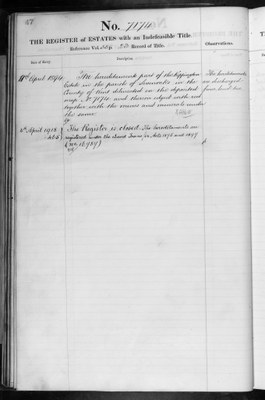 47
No. 7174
THE REGISTER of ESTATES with an Indefeasible Title.
Reference Vol. 23 Record of Title.
Date of Entry.
Description.
Observations.
11th April 1874.
The hereditaments part of the Keppington
Estate in the parish of Sevenoaks in the
County of Kent delineated in the deposited
map No 7174 and thereon edged with red
together with the mines and minerals under
the same
The hereditaments
are discharged
from land tax
4th April 1902
The Register is closed. The hereditaments are
registered under the Land Transfer Acts 1875 and 1897